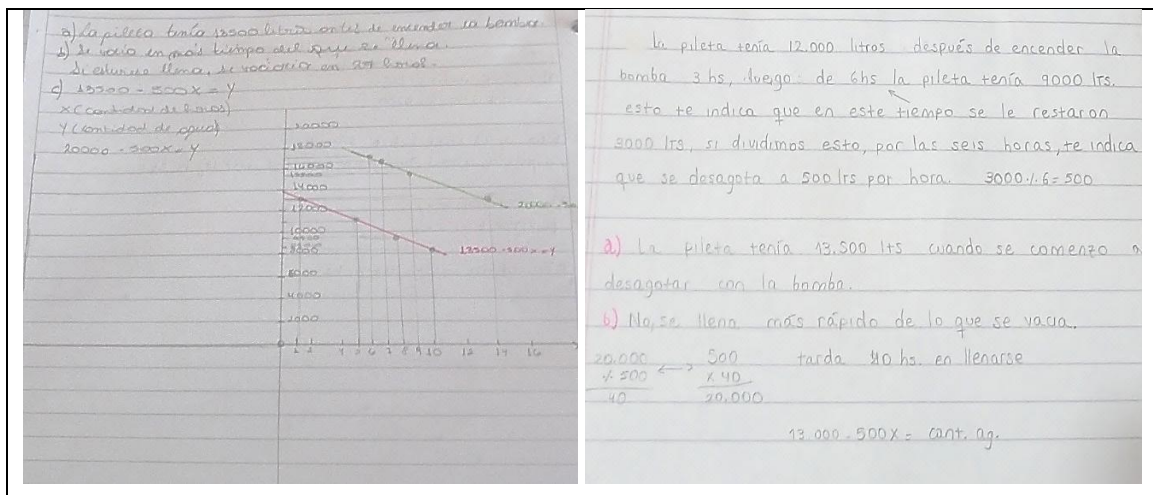 a) La pileta tenía 13500 litros antes de encender la bomba.
b) Se vacia en más tiempo del que se llena.
Si estuviese llena, se vaciaria en horas.
c) 13500 - 500x = Y
X (cantidad de horas)
Y (cantidad de agua)
20000 - 500x = Y
20000
18000
14000
12000
10000
8000
6000
4000
2000
13500 - 500x = Y
1 2 4 5 6 7 8 9 10 12 14 16
La pileta tenía 12.000 litros después de encender la
bomba 3 hs, luego de 6hs la pileta tenía 9000 lts.
esto te indica que en este tiempo se le restaron
3000 lts, si dividimos esto, por las seis horas, te indica
que se desagota a 500 lts por hora. 3000 ./. 6 = 500
a) La pileta tenía 13.500 lts cuando se comenzo a
desagotar con la bomba.
b) No, se llena más rápido de lo que se vacia.
20.000 ←→ 500 tarda 40 hs. en llenarse
./. 500 x 40
40 20.000
13.000 - 500x = cant. ag.